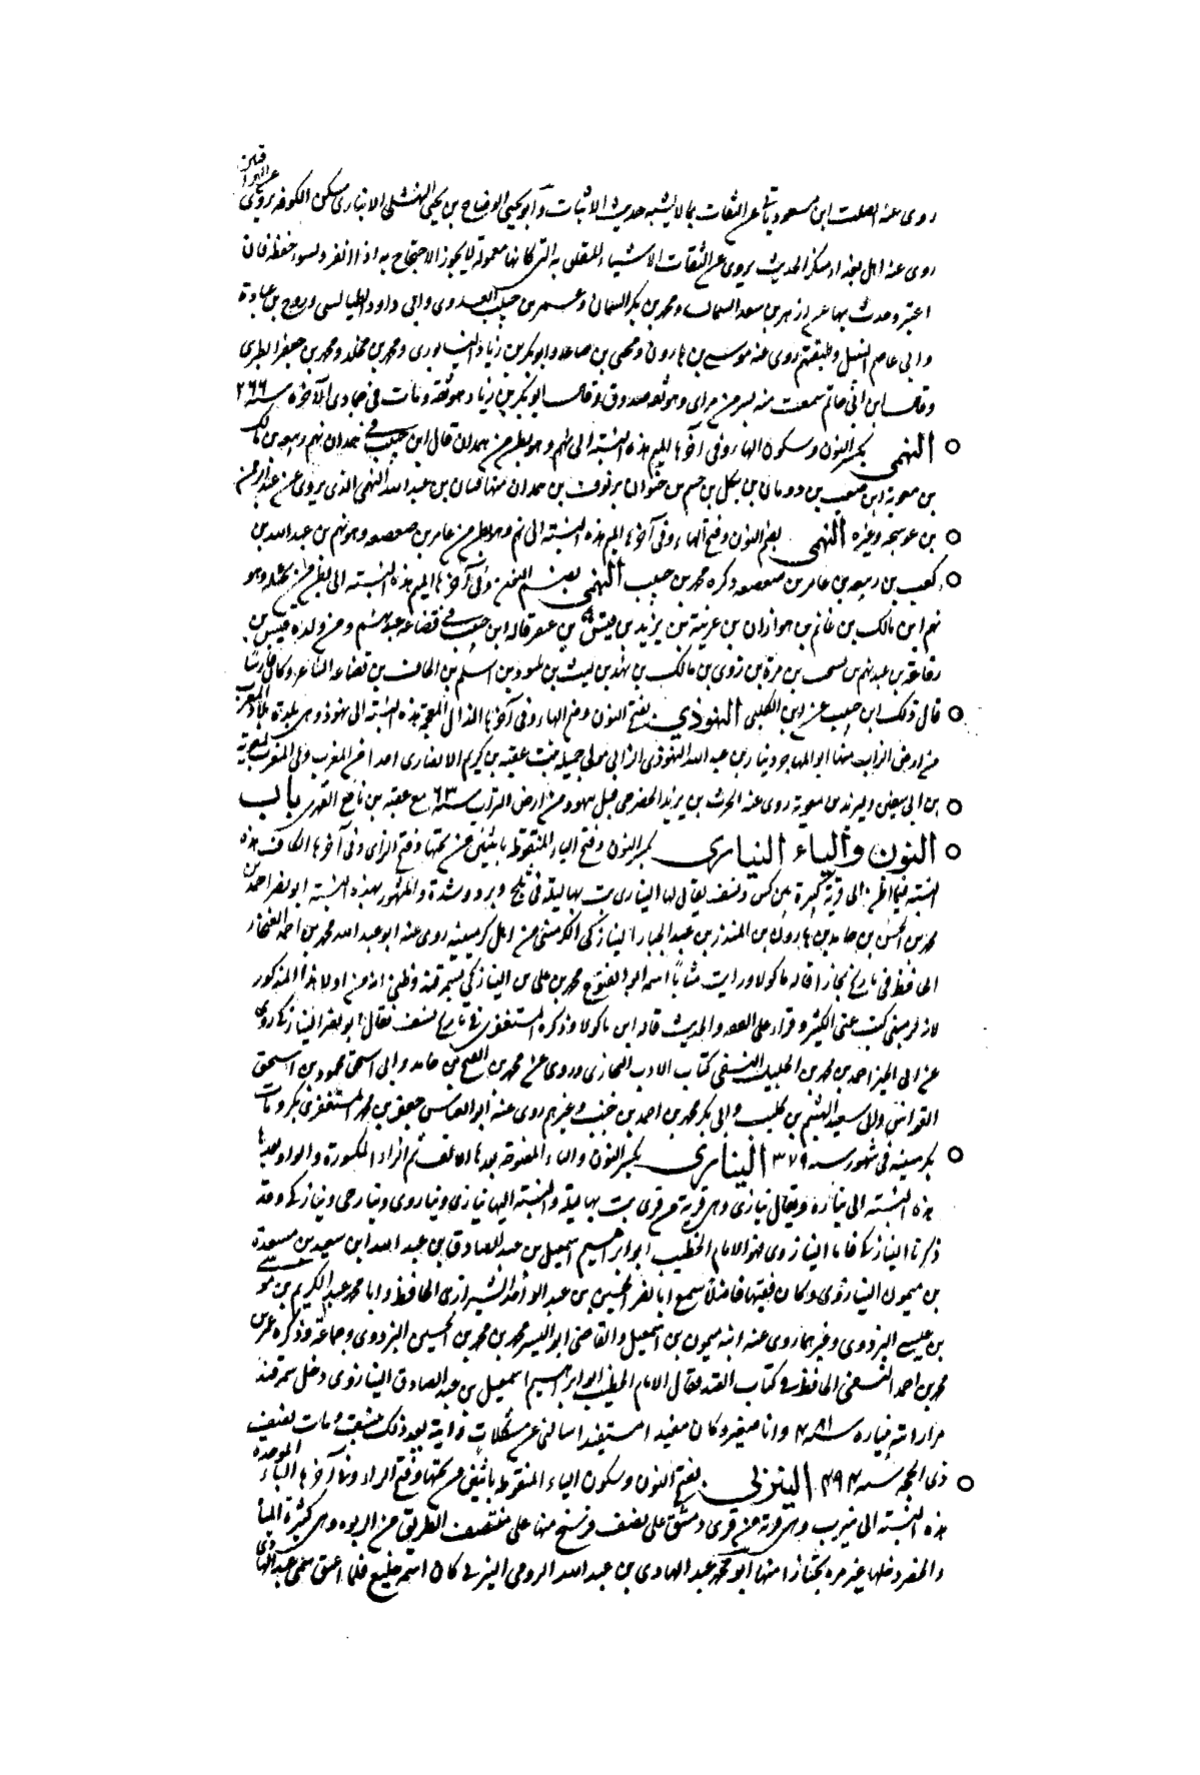 روى عنه الصلت ابن مسعود ياتي عن الثقات بما لا يشبه حديث الاثبات وابو يحيى الوضاح بن يحيى النهشلي الانباري سكن الكوفه يروى عن العراقيين
روى عنه اهل بغداد منكر الحديث يروى عن الثقات الاشياء المقلوبه التي كانها معمولة لا يجوز الاحتجاج به اذا انفرد لسوء حفظه فان
اعتبر وحدث بها عن ازهر بن سعد السمان ومحمد بن بكر السمان وعمر بن حبيب العدوى وابى داود الطيالسى وروح بن عبادة
وابى عاصم النبيل وطبقتهم روى عنه موسى بن هارون ويحيى بن صاعد وابو بكر بن زياد النيسابورى ومحمد بن مخلد ومحمد بن جعفر المطرى
وقال ابن ابى حاتم سمعت منه بسر من راى وهو ثقه صدوق وقال ابو بكر بن زياد هو ثقه ومات فى جمادى الآخره سنه ٢٦٦
النهمى بكسر النون وسكون الهاء وفى آخرها الميم هذه النسبة الى نهم وهو بطن من همدان قال ابن حبيب فى همدان نهم بن ربيعه بن مالك
بن معوية ابن صعب بن دومان بن بكيل بن جشم بن خيوان بن نوف بن همدان منها بن عبد الله النهمى الذى يروى عن عبد الرحمن
بن عوسجه وغيره النهمى بضم النون وفتح الهاء وفى آخرها الميم هذه النسبة الى نهم وهو بطن من عامر بن صعصعه وهو نهم بن عبد الله بن
كعب بن ربيعه بن عامر بن صعصعه ذكره محمد بن حبيب النهمى بضم النون وفى آخرها الميم هذه النسبة الى بطن من وهو
نهم ابن مالك بن غانم بن هوازان بن عرينة بن يزيد بن قيس بن عبقر قاله ابن حبيب فى قضاعه عبد نهم ومن ولده قيس بن
رفاعة بن عبد نهم بن بن مرة بن زوى بن مالك بن نهد بن ليث بن سود بن اسلم بن الحاف بن قضاعه الشاعر وكان فارسا
قال ذلك ابن حبيب عن ابن الكلبى النهوذي بفتح النون وضم الهاء وفى آخرها الذال المعجمة هذه النسبة الى نهوذ وهى بليدة بلاد المغرب
من ارض الزاب منها ابو المهاجر دينار بن عبد الله النهوذى الزابى مولى جميلة بنت عقبه بن كريم الانصارى احد امراء المغرب ولى المغرب لمعوية
بن ابى سفين وليزيد بن معوية روى عنه الحرث بن يزيد الحضرمى قتل بنهوذ من ارض الزاب سنه ٦٣ مع عقبه بن نافع الفهرى باب
النون والياء النيازى بكسر النون وفتح الياء المنقوطه باثنتين من تحتها وفتح الزاى وفى آخرها الكاف هذه
النسبة فيما اظن الى قرية كبيرة بين كس ونسف يقال لها النيازى بت بها ليلة فى ثلج وبرد وشدة والمشهور بهذه النسبة ابو نصر احمد بن
محمد بن الحسن بن حامد بن هارون بن المنذر بن عبد الجبار النيازكى الكرمينى من اهل كرمينيه روى عنه ابو عبد الله محمد بن احمد الغنجار
الحافظ فى تاريخ بخارا قاله ماكولا ورايت شابا اسمه ابو الفتوح محمد بن على بن النيازكى بسمرقند وظنى انه من اولاد هذا المذكور
لانه كرمينى كتب عنى الكثير وقراء على الفقه والحديث قاله ابن ماكولا وذكره المستغفرى فى تاريخ نسف فقال ابو نصر النيازكى روى
عن ابى الخير احمد بن محمد بن الجليل النسفى كتاب الادب للبخارى وروى عن محمد بن الفتح بن حامد وابى اسحق محمود بن اسحق
القواس وابى سعيد الهيثم بن كليب وابى بكر محمد بن احمد بن خنب وغيرهم روى عنه ابو العباس جعفر بن محمد المستغفرى بكر ومات
بكرمينه فى شهور سنه ٣٧٩ النيازى بكسر النون والياء المفتوحه بعدها الالف ثم الزاء المكسورة والواو بعدها
هذه النسبة الى نيازه ويقال نيازى وهى قرية من قرى بت بها ليلة والنسبة اليها نيازى ونيازوى ونيازجى ونيازكى وقد
ذكرنا النيازكى فاما النيازوى فهو الامام الخطيب ابو ابراهيم اسمعيل بن عبد الصادق بن عبد الله ابن سعيد بن مسعدة
بن ميمون النيازوى وكان فقيها فاضلا سمع ابا نصر الحسين بن عبد الواحد الشيرازى الحافظ وابا محمد عبد الكريم بن موسى
بن عيسى البزدوى وغيرهما روى عنه ابنه ميمون بن اسمعيل والقاضى ابو اليسر محمد بن محمد بن الحسين البزدوى وجماعة وذكره عمر بن
محمد بن احمد النسفى الحافظ فى كتاب القند فقال الامام الخطيب ابو ابراهيم اسمعيل بن عبد الصادق النيازوى دخل سمرقند
مرارا نيازه سنه ٤٨١ وانا صغير وكان مفيد المستفيد اسالنى عن مشكلات بعد ذلك بنسف ومات بنسف
ذى الحجه سنه ٤٩٤ النيربى بفتح النون وسكون الياء المنقوطه باثنتين من تحتها وفتح الراء وفى آخرها الباء الموحدة
هذه النسبة الى نيرب وهى قرية من قرى دمشق على نصف فرسخ منها على منتصف الطريق من الربوه وهى كثيرة المياه
والخضر دخلها غير مره مجتازا منها ابو محمد عبد الهادى بن عبد الله الرومى النيربى كان اسمه خليع فلما اعتق سمى عبد الهادى